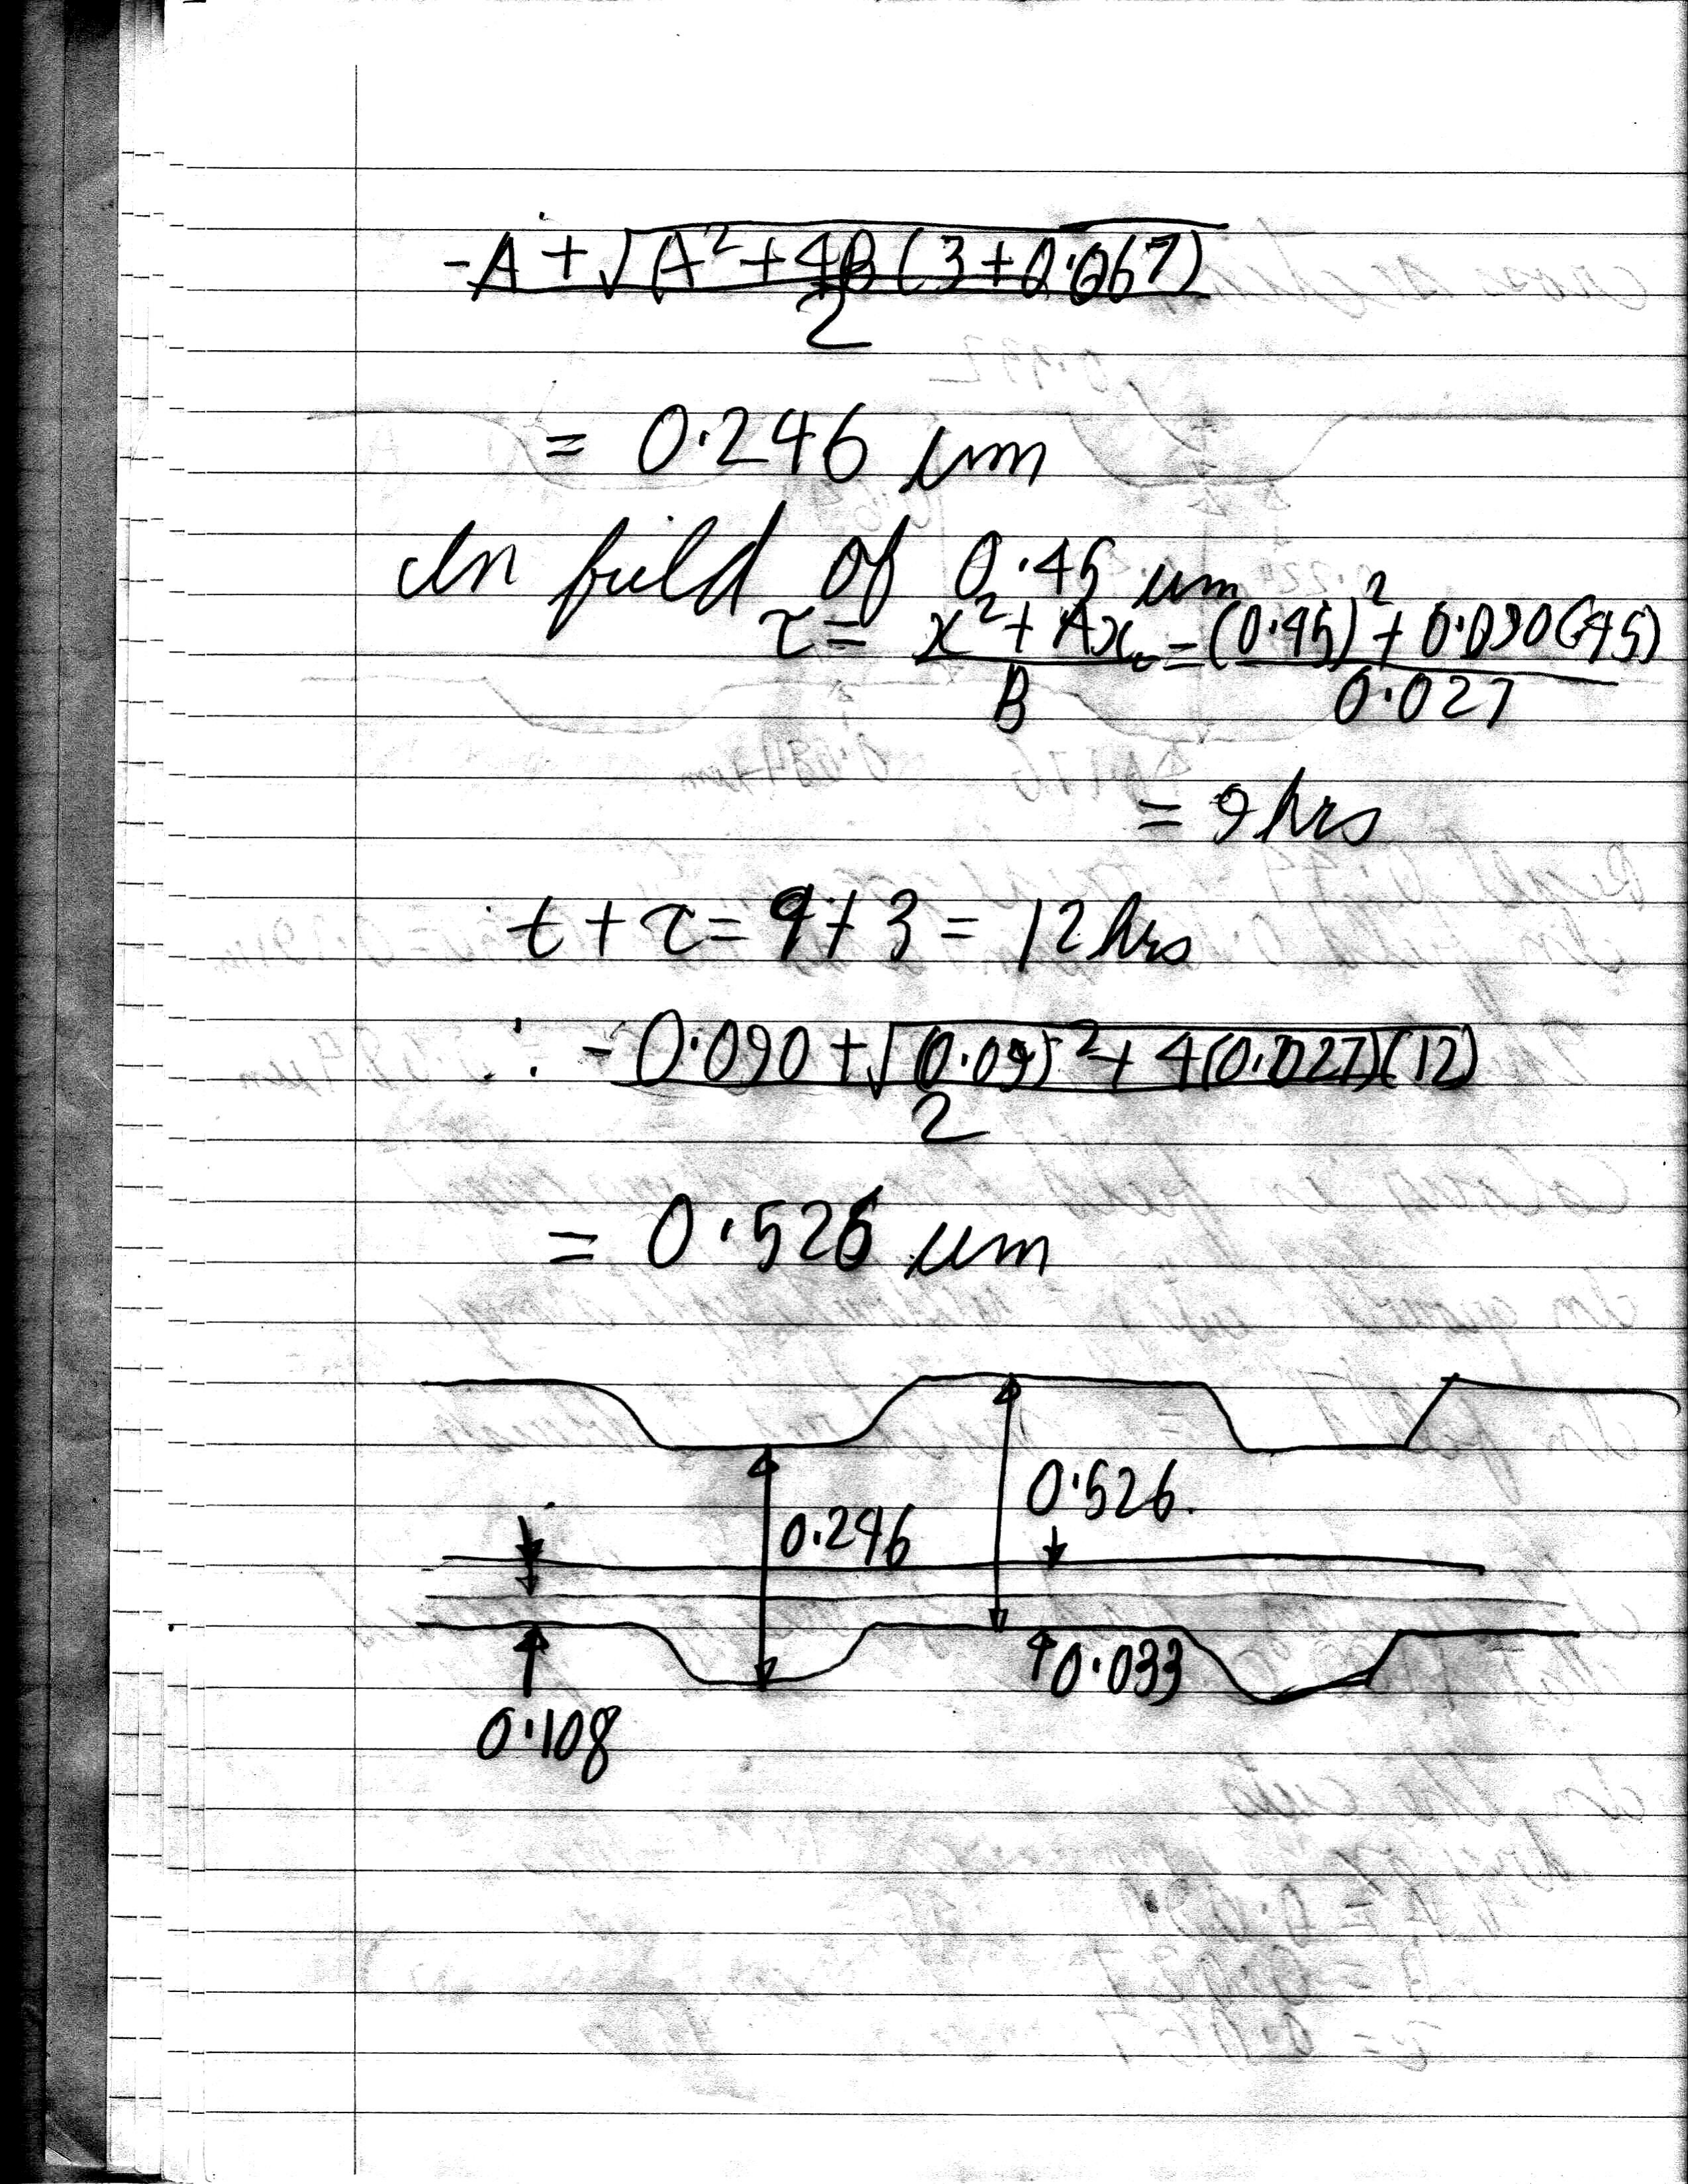 -A + √(A² + 4B (3 + 0.067)
2
= 0.246 um
In field of 0.45 um
τ = x² + Ax = (0.45)² + 0.090(.45)
B 0.027
= 9 hrs
t + τ = 9 + 3 = 12 hrs
∴ -0.090 + √(0.09)² + 4(0.027)(12)
2
= 0.526 um
0.526.
0.246
0.033
0.108